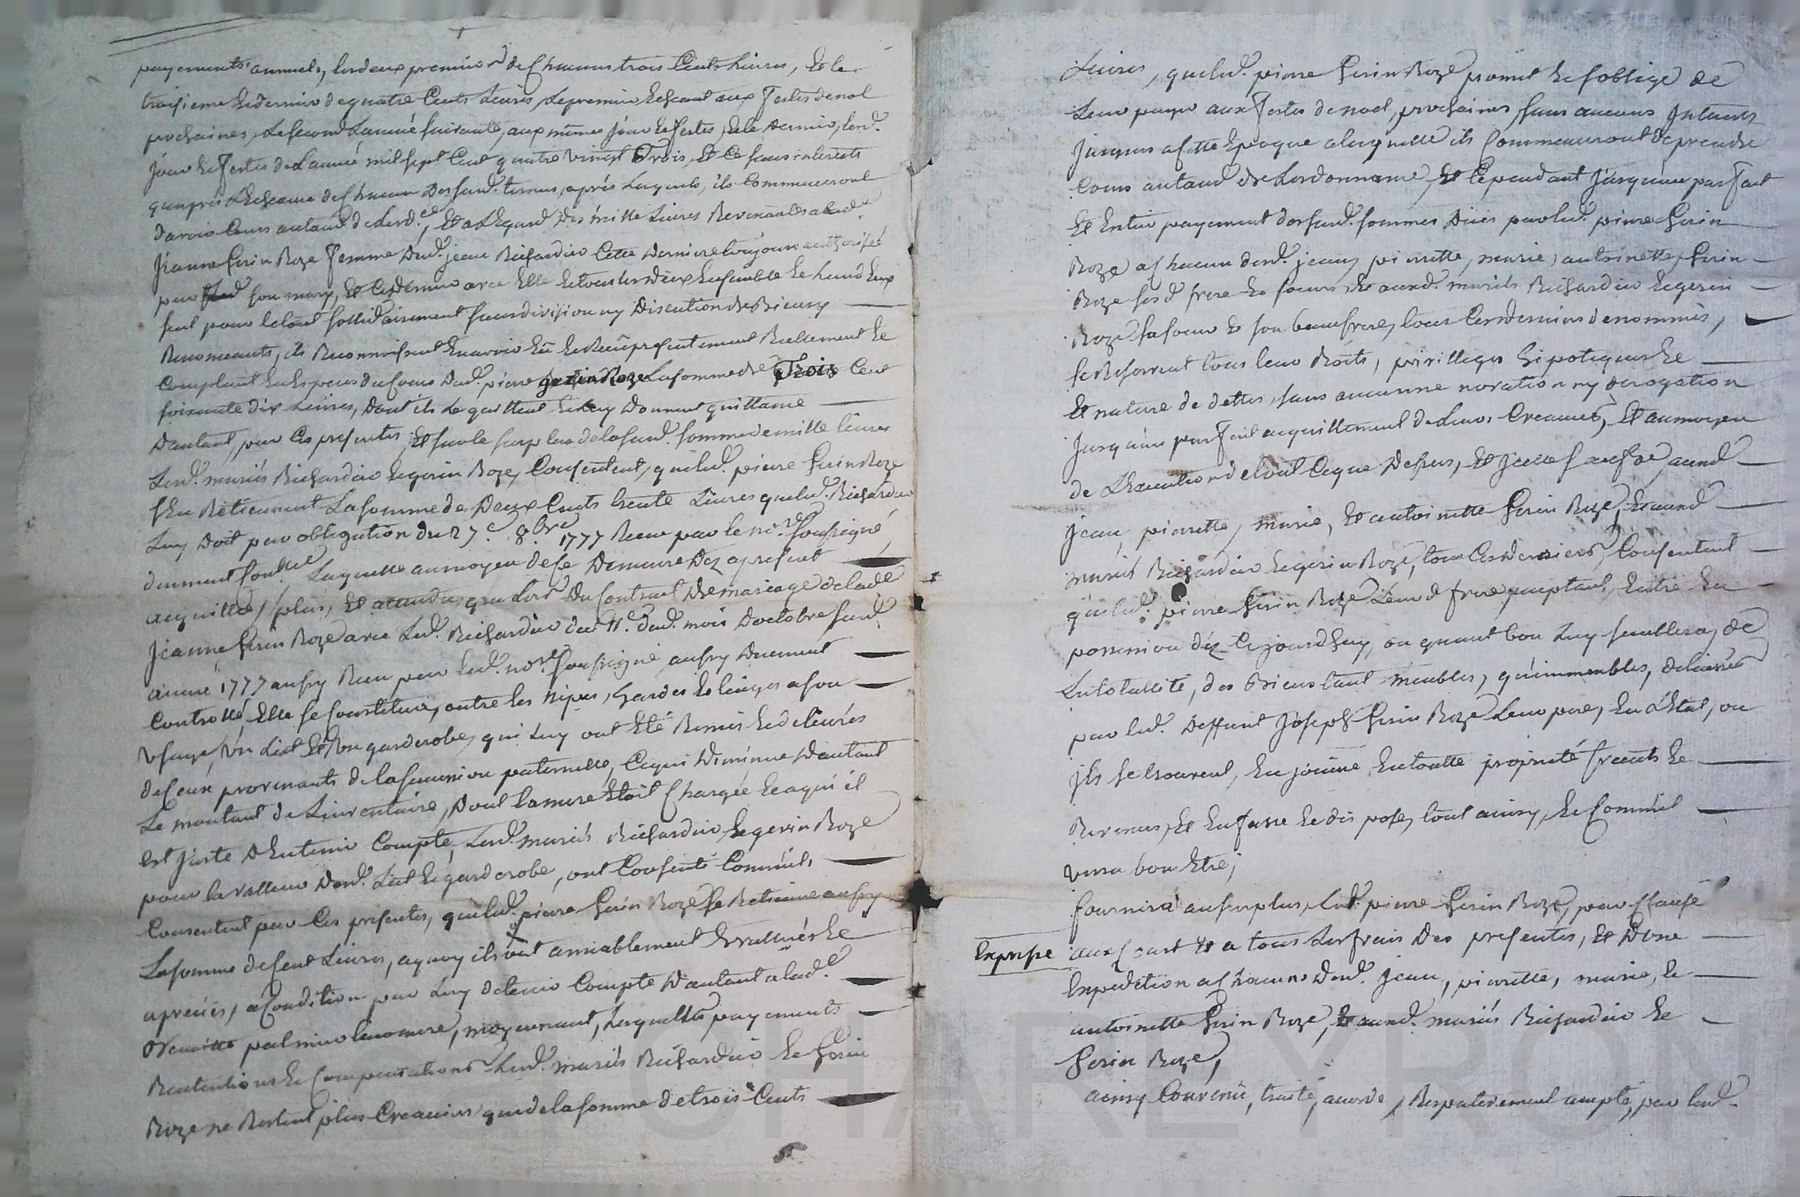 payements annuels, les deux premiers de chacuns trois Cents Livres, Et le
troisieme Et dernier de quatre Cents Livres, Le premier Echeant aux festes de noel
prochaines, Le second L'année suivante, aux memes jour Et festes, Et le dernier, lesd.
jour Et festes de L'année mil sept Cent quatre vingt Trois, Et Ce sans interests
qu'après L'Echeance de chacun desd. termes, après Lesquels, ils Commenceront
d'avoir Cours au taux de L'ord.ce, Et a L'Egard Des mille Livres Revenants a lad.
jeanne Gerin Roze femme Dud. jean Richardier Cette Derniere toujours authorisée
par sond. mary, Et Ce dernier avec Elle Et tous les deux Ensemble Et L'un d'Eux
seul pour le tout sollidairement sans division ny Discution de Biens
Renonceants, ils Reconnoissent En avoir Eu Et Reçu presentement Reellement Et
Comptant En Especes du Cours Dud. pierre gerin Roze La somme de Trois Cent
soixante dix Livres, Dont ils Le quittent Et luy Donnent quittance
D'autant, par Ces presentes, Et sur le surplus de la sud. somme de mille livres
Lesd. mariés Richardier Et gerin Roze, Consentent, que led. pierre Gerin Roze
s'En Retiennent La somme de Deux Cents trente Livres que led. Richardier
Luy Doit par obligation du 27.e 8.bre 1777 Recue par le no.re soussigné,
duement Coullée, Laquelle au moyen de Ce Demeure Dez a present
acquittée, plus, Et attendu, que Lors Du Contract De mariage de lad.e
jeanne Gerin Roze avec Led. Richardier du 11.e dud. mois D'octobre susd.
année 1777 aussy Recu par Led. no.re soussigné, aussy Duement
Controllé Elle se Constitua, outre les Nipes, hardes Et linges a son
usage, Un Lict Et Un garderobe, qui Luy ont Eté Remis Et delivrés
de Ceux provenants de la succession paternelle, Ce qui Diminue D'autant
Le montant de L'inventaire, Dont La mere Etoit Chargée Et a qui il
Est juste D'En tenir Compte, Lesd. mariés Richardier Et gerin Roze
pour la valleur Desd. Lict Et garderobe, ont Consenti Comme ils
Consentent par Ces presentes, que led. pierre Gerin Roze se Retienne aussy
La somme de Cent Livres, a quoy ils ont amiablement Evalluées Et
apreciés, a Condition par Luy de tenir Compte D'autant a lad.e
palmier leur mere, moyennant, Lesquelles payements
Retentions Et Compensations Lesd. mariés Richardier Et Gerin
Roze ne Restent plus Creanciers que de la somme de trois Cents
Livres, que led. pierre Gerin Roze promet Et s'oblige de
Leur payer aux festes de noel, prochaines sans aucuns Interests
jusques a Cette Epoque a laquelle ils Commenceront de prendre
Cours au taux de L'ordonnance, Et Cependant jusqu'au parfait
Et Entier payement desd. sommes Dües par led. pierre Gerin
Roze a chacun desd. jean, pierrette, marie, antoinette, Gerin
Roze sesd. frere Et sœurs Et auxd. mariés Richardier Et gerin
Roze sa sœur Et son beaufrere, tous Ces derniers denommés,
se Reservent tous leur droits, privilleges hipoteques Et
Et nature de dettes, sans aucunne novation ny derogation
jusqu'au parfait acquittement de Leurs Creances, Et au moyen
de L'Execution de tout Ce que Dessus, Et jcelle sauf Ce, auxd.
jean, pierrette, marie, Et antoinette Gerin Roze, Et auxd.
mariés Richardier Et gerin Roze, tous Ces derniers, Consentent
que led. pierre Gerin Roze Leurd. frere puptant, Entre En
possession déz Ce jourd'huy, ou quant bon Luy semblera, de
La totallité, des Biens tant meubles, qu'immeubles, delaissés
par led. Deffunt joseph Gerin Roze Leur pere, En L'Etat, ou
jls se trouvent, En jouisse En toutte proprieté fruits Et
Revenus, Et En fasse Et dispose, tout ainsy, Et Comme il
verra bon Etre;
fournira au surplus, Led. pierre Gerin Roze, par Clause
Expresse aux Couts Et a tous Les frais Des presentes, Et D'une
Expedition a chacuns Desd. jean, pierrette, marie, Et
antoinette Gerin Roze, Et auxd. mariés Richardier Et
Gerin Roze,
ainsy Convenu, traité, accordé, Respectivement accepté, par lesd.
CHALEYRON